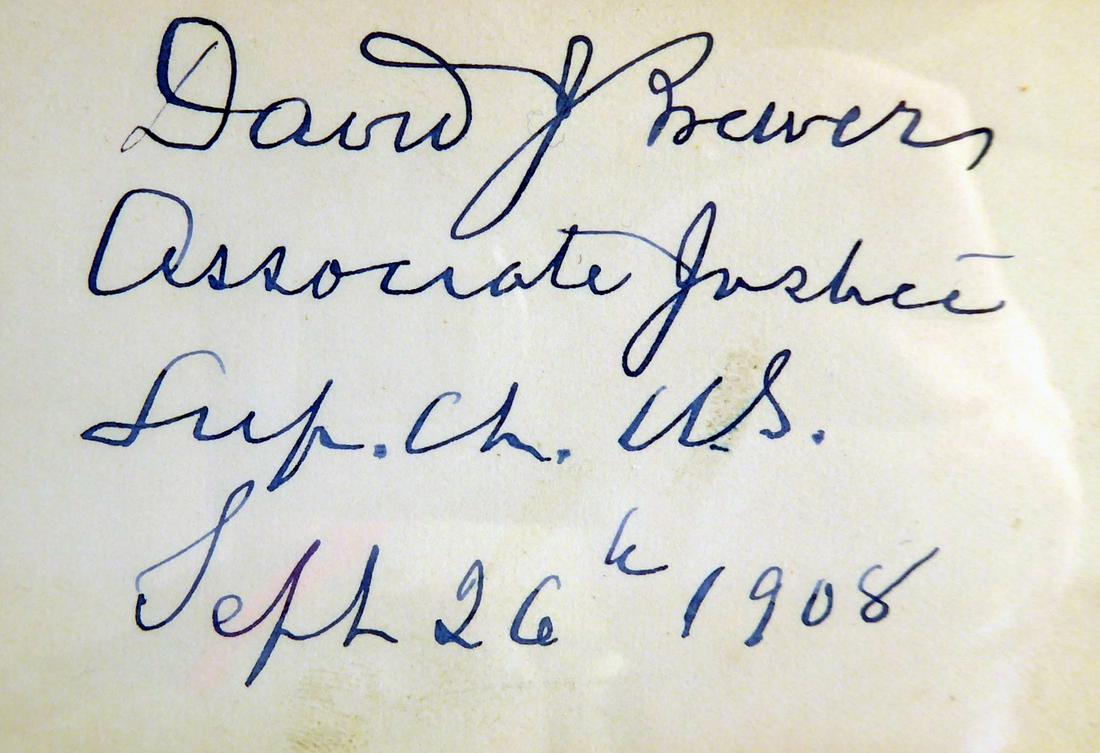 David J Brewer,
Associate Justice
Sup. Ct. U.S.
Sept 26th 1908